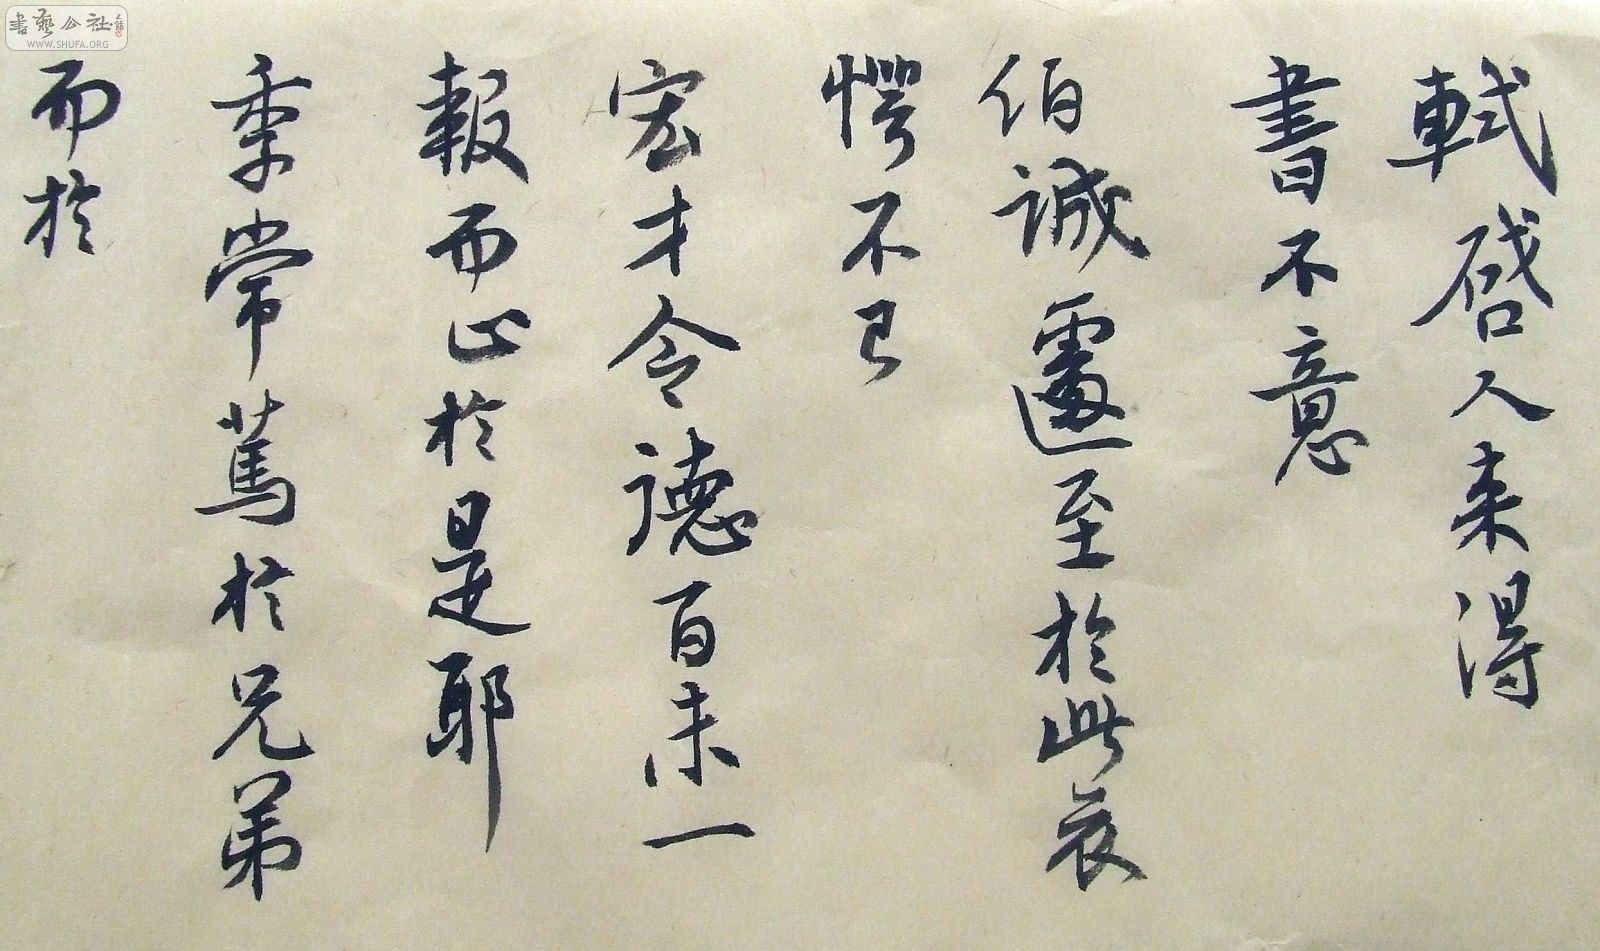 軾啓人来得
書不意
伯誠遽至於此哀
愕不已
宏才令德百未一
報而止於是耶
季常篤於兄弟
而於
書藝公社
WWW.SHUFA.ORG